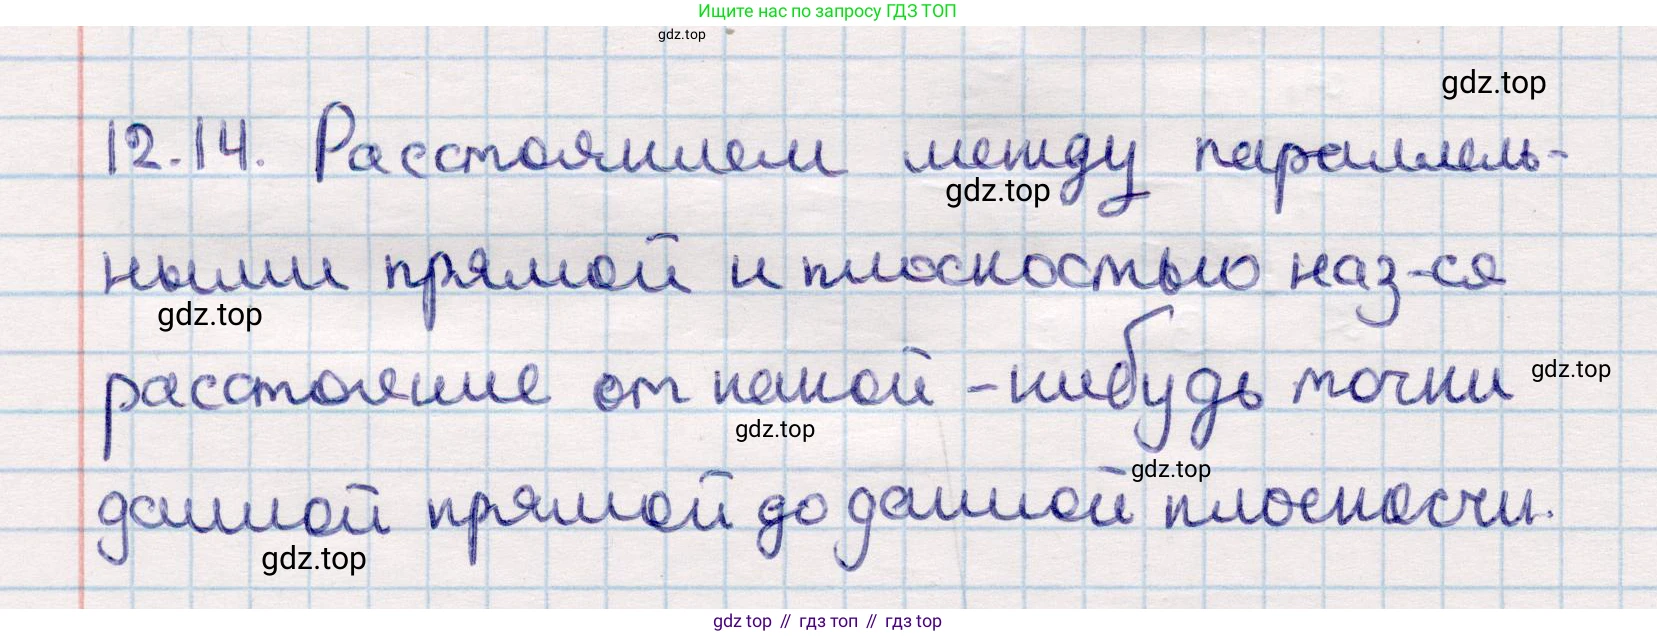 Ищите нас по запросу ГДЗ ТОП
gdz.top
gdz.top
12.14. Расстоянием между параллель-
gdz.top
ными прямой и плоскостью наз-ся
gdz.top
расстояние от какой-нибудь точки
gdz.top
gdz.top
gdz.top
данной прямой до данной плоскости.
gdz.top
gdz top // гдз топ // gdz top